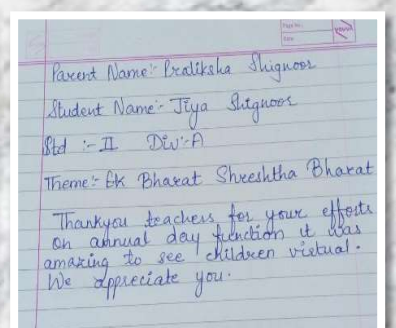 Parent Name:- Pratiksha Shignoor
Student Name:- Jiya Shignoor
Std :- II Div:- A
Theme:- Ek Bharat Shreshtha Bharat
Thankyou teachers for your efforts
on annual day function it was
amazing to see children virtual.
We appreciate you.